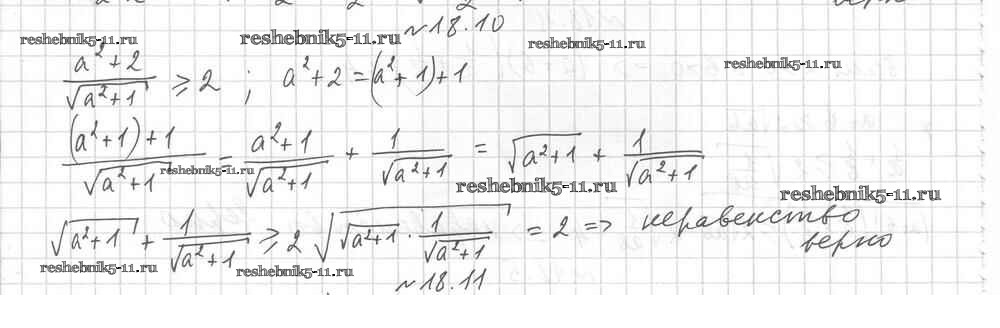 №18.10
reshebnik5-11.ru reshebnik5-11.ru reshebnik5-11.ru reshebnik5-11.ru
(a²+2)/√(a²+1) ⩾ 2 ; a²+2=(a²+1)+1
((a²+1)+1)/√(a²+1) = (a²+1)/√(a²+1) + 1/√(a²+1) = √(a²+1) + 1/√(a²+1)
reshebnik5-11.ru reshebnik5-11.ru reshebnik5-11.ru
√(a²+1) + 1/√(a²+1) ⩾ 2√(√(a²+1) · 1/√(a²+1)) = 2 => неравенство
верно
reshebnik5-11.ru reshebnik5-11.ru
№18.11